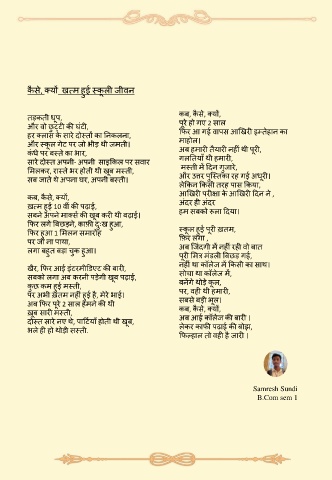 कैसे, क्यों खत्म हुई स्कूली जीवन
तड़कती धूप,
और वो छुट्टी की घंटी,
हर क्लास के सारे दोस्तों का निकलना,
और स्कूल गेट पर जो भीड़ थी जमती।
कंधे पर बस्ते का भार,
सारे दोस्त अपनी- अपनी साइकिल पर सवार
मिलकर, रास्ते भर होती थी खूब मस्ती,
सब जाते थे अपना घर, अपनी बस्ती।
कब, कैसे, क्यों,
खत्म हुई 10 वीं की पढ़ाई,
सबने अपने मार्क्स की खूब करी थी बढ़ाई।
फिर लगे बिछड़ने, काफ़ी दुःख हुआ,
फिर हुआ 1 मिलन समारोह
पर जी ना पाया,
लगा बहुत बड़ा चूक हुआ।
खैर, फिर आई इंटरमीडिएट की बारी,
सबको लगा अब करनी पड़ेगी खूब पढ़ाई,
कुछ कम हुई मस्ती,
पर अभी ख़तम नहीं हुई है, मेरे भाई।
अब फिर पूरे 2 साल हमने की थी
खूब सारी मस्ती,
दोस्त सारे नए थे, पार्टियाँ होती थी खूब,
भले ही हो थोड़ी सस्ती.
कब, कैसे, क्यों,
पूरे हो गए 2 साल
फिर आ गई वापस आखिरी इम्तेहान का
माहौल।
अब हमारी तैयारी नहीं थी पूरी,
गलतियाँ थी हमारी,
मस्ती में दिन गुजारे,
और उत्तर पुस्तिका रह गई अधूरी।
लेकिन किसी तरह पास किया,
आखिरी परीक्षा के आखिरी दिन ने ,
अंदर ही अंदर
हम सबको रुला दिया।
स्कूल हुई पूरी खतम,
फिर लगा ,
अब जिंदगी में नहीं रही वो बात
पूरी मित्र मंडली बिछड़ गई,
नहीं था कॉलेज में किसी का साथ।
सोचा था कॉलेज में,
बनेंगे थोड़े कूल,
पर, वही थी हमारी,
सबसे बड़ी भूल।
कब, कैसे, क्यों,
अब आई कॉलेज की बारी ।
लेकर काफी पढ़ाई की बोझ,
फिल्हाल तो वही है जारी ।
Samresh Sundi
B.Com sem 1